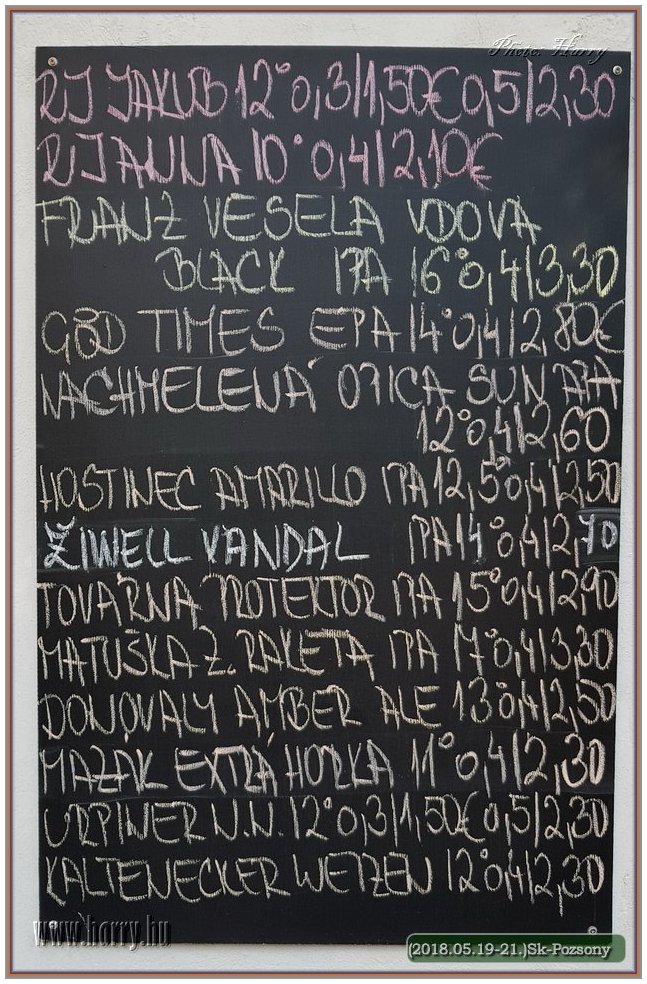 Photo: Harry
RJ JAKUB 12° 0,3/1,50€ 0,5/2,30
RJ ANNA 10° 0,4/2,10€
FRANZ VESELA VDOVA
BLACK IPA 16° 0,4/3,30
GOOD TIMES EPA 14° 0,4/2,80€
NACHMELENÁ OPICA SUN APA
12° 0,4/2,60
HOSTINEC AMARILLO IPA 12,5° 0,4/2,50
ŽIWELL VANDAL IPA 14° 0,4/2,70
TOVÁRŇA PROTEKTOR IPA 15° 0,4/2,90
MATUŠKA Z. RAKETA IPA 17° 0,4/3,30
DONOVALY AMBER ALE 13° 0,4/2,50
MAZÁK EXTRA HORKÁ 11° 0,4/2,30
URPINER N.N. 12° 0,3/1,50€ 0,5/2,30
KALTENECKER WEIZEN 12° 0,4/2,30
www.harry.hu
(2018.05.19-21.)Sk-Pozsony